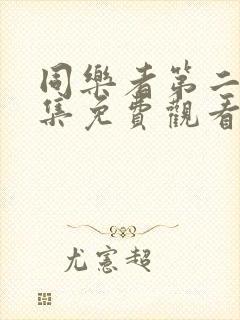 同樂者第二
集免費觀看
尤憲超